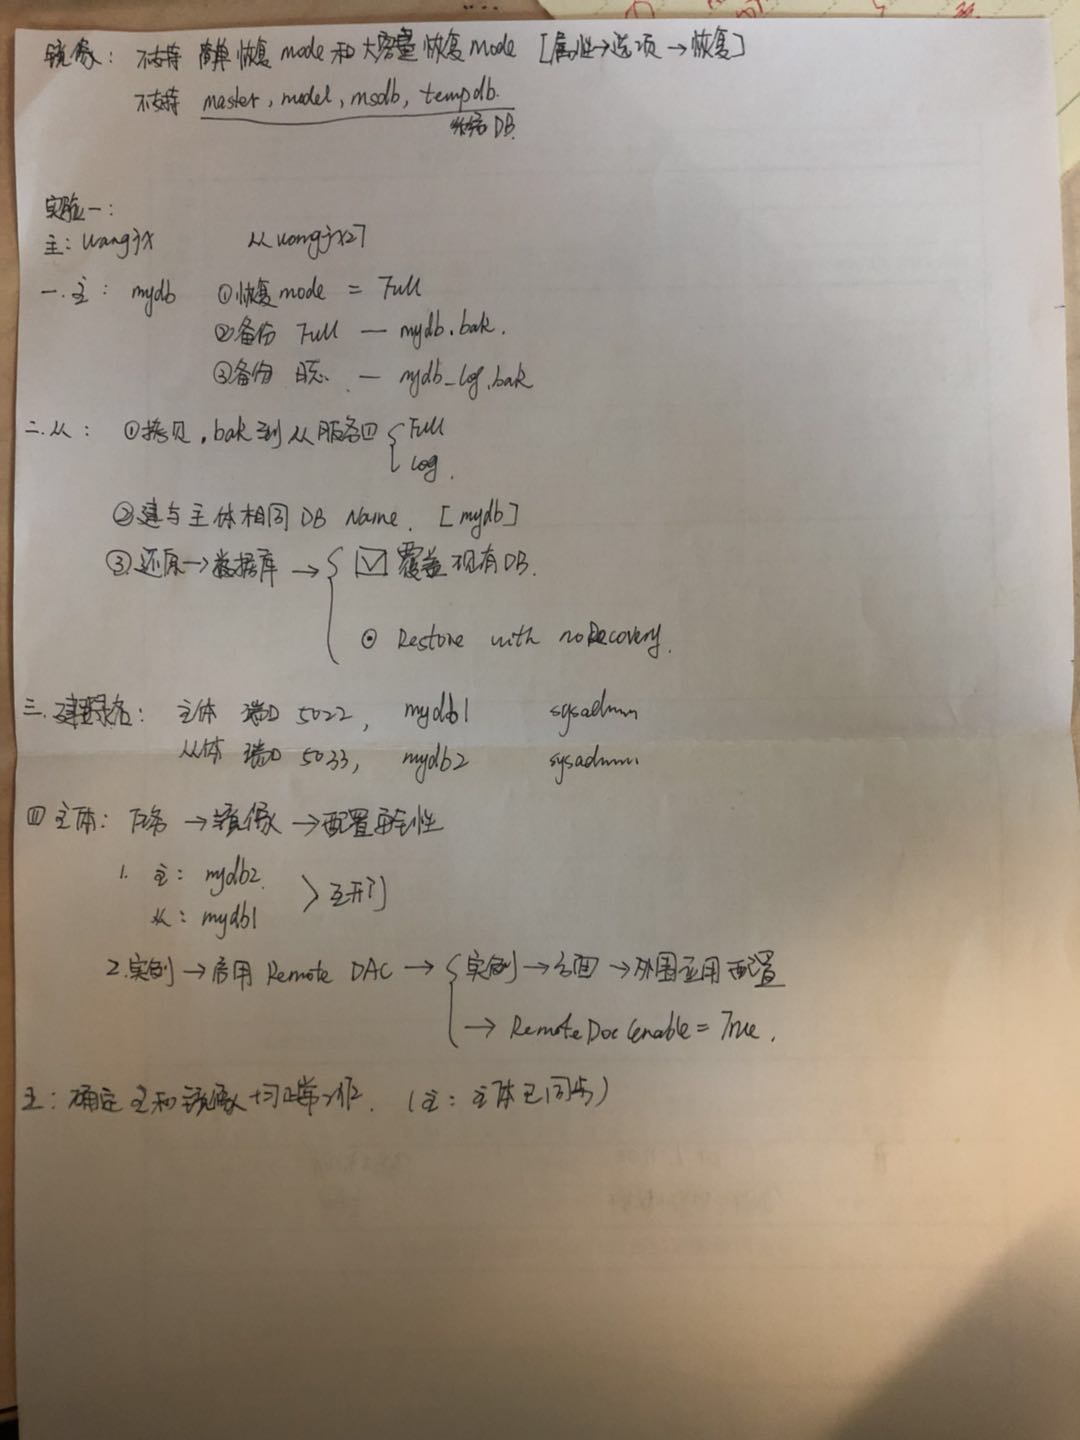 镜像: 不支持 简单恢复mode和大容量恢复mode [属性→选项→恢复]
不支持 master, model, msdb, tempdb.
系统DB.
实验一:
主: wangjx 从wangjx27
一.主: mydb ①恢复mode = Full
②备份 Full — mydb.bak.
③备份 日志. — mydb_log.bak
二.从: ①拷贝.bak到从服务口 { Full
log.
②建与主体相同DB Name. [mydb]
③还原→数据库 → { ☑ 覆盖现有DB.
⊙ Restore with noRecovery.
三.建登录名: 主体 端口 5022, mydb1 sysadmin
从体 端口 5033, mydb2 sysadmin
四 主体: 任务 →镜像 →配置安全性
1. 主: mydb2.
从: mydb1 > 互开门
2.实例→启用 Remote DAC → { 实例→方面→外围应用配置
→ RemoteDacEnable = True.
主: 确定主和镜像均正常工作. (主: 主体已同步)